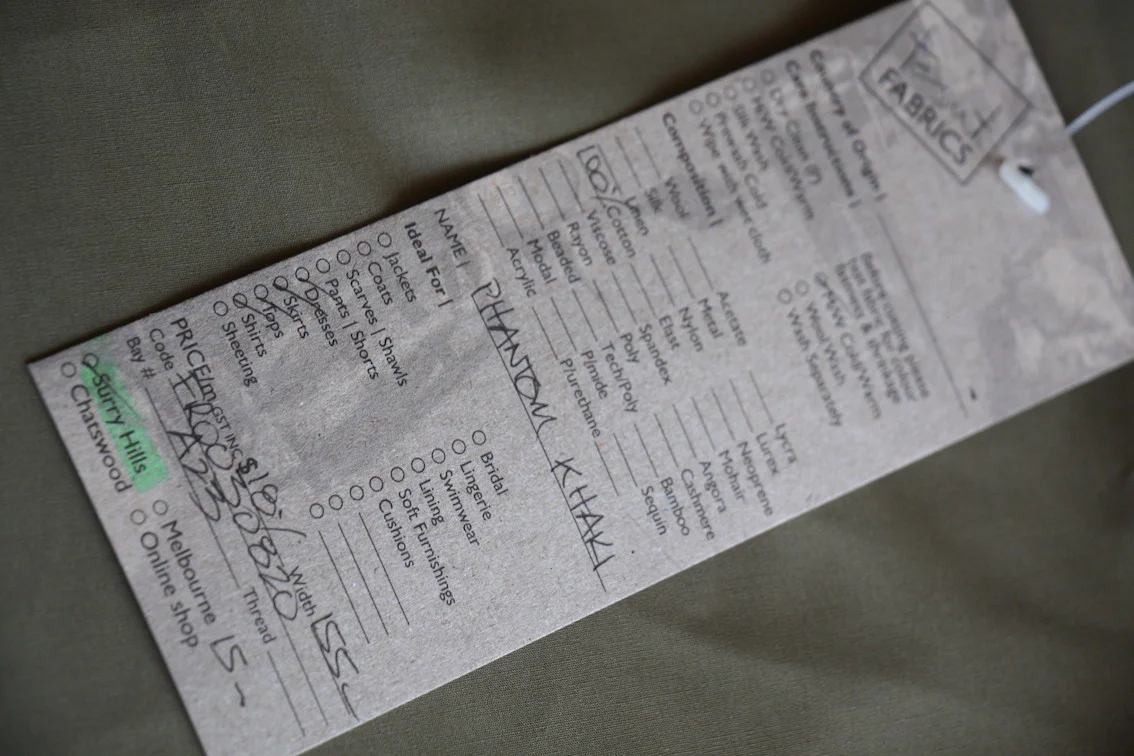 FABRICS
Country of Origin |
Care Instructions |
Dry Clean (P)
H/W Cold/Warm
Silk Wash
Prewash Cold
Wipe with wet cloth
Before cutting please
test fabric for colour
fastness & shrinkage
M/W Cold/Warm
Wool Wash
Wash Separately
Composition |
Wool
Silk
Linen
100% Cotton
Viscose
Rayon
Beaded
Modal
Acrylic
Acetate
Metal
Nylon
Elast
Spandex
Poly
Tech/Poly
P/mide
P/urethane
Lycra
Lurex
Neoprene
Mohair
Angora
Cashmere
Bamboo
Sequin
NAME | PHANTOM KHAKI
Ideal For |
Jackets
Coats
Scarves | Shawls
Pants | Shorts
Dresses
Skirts
Tops
Shirts
Sheeting
Bridal
Lingerie
Swimwear
Lining
Soft Furnishings
Cushions
PRICE/m GST INC $18:/ Width 155
Code
Bay # A23 Thread
Surry Hills
Chatswood
Melbourne
Online shop
15